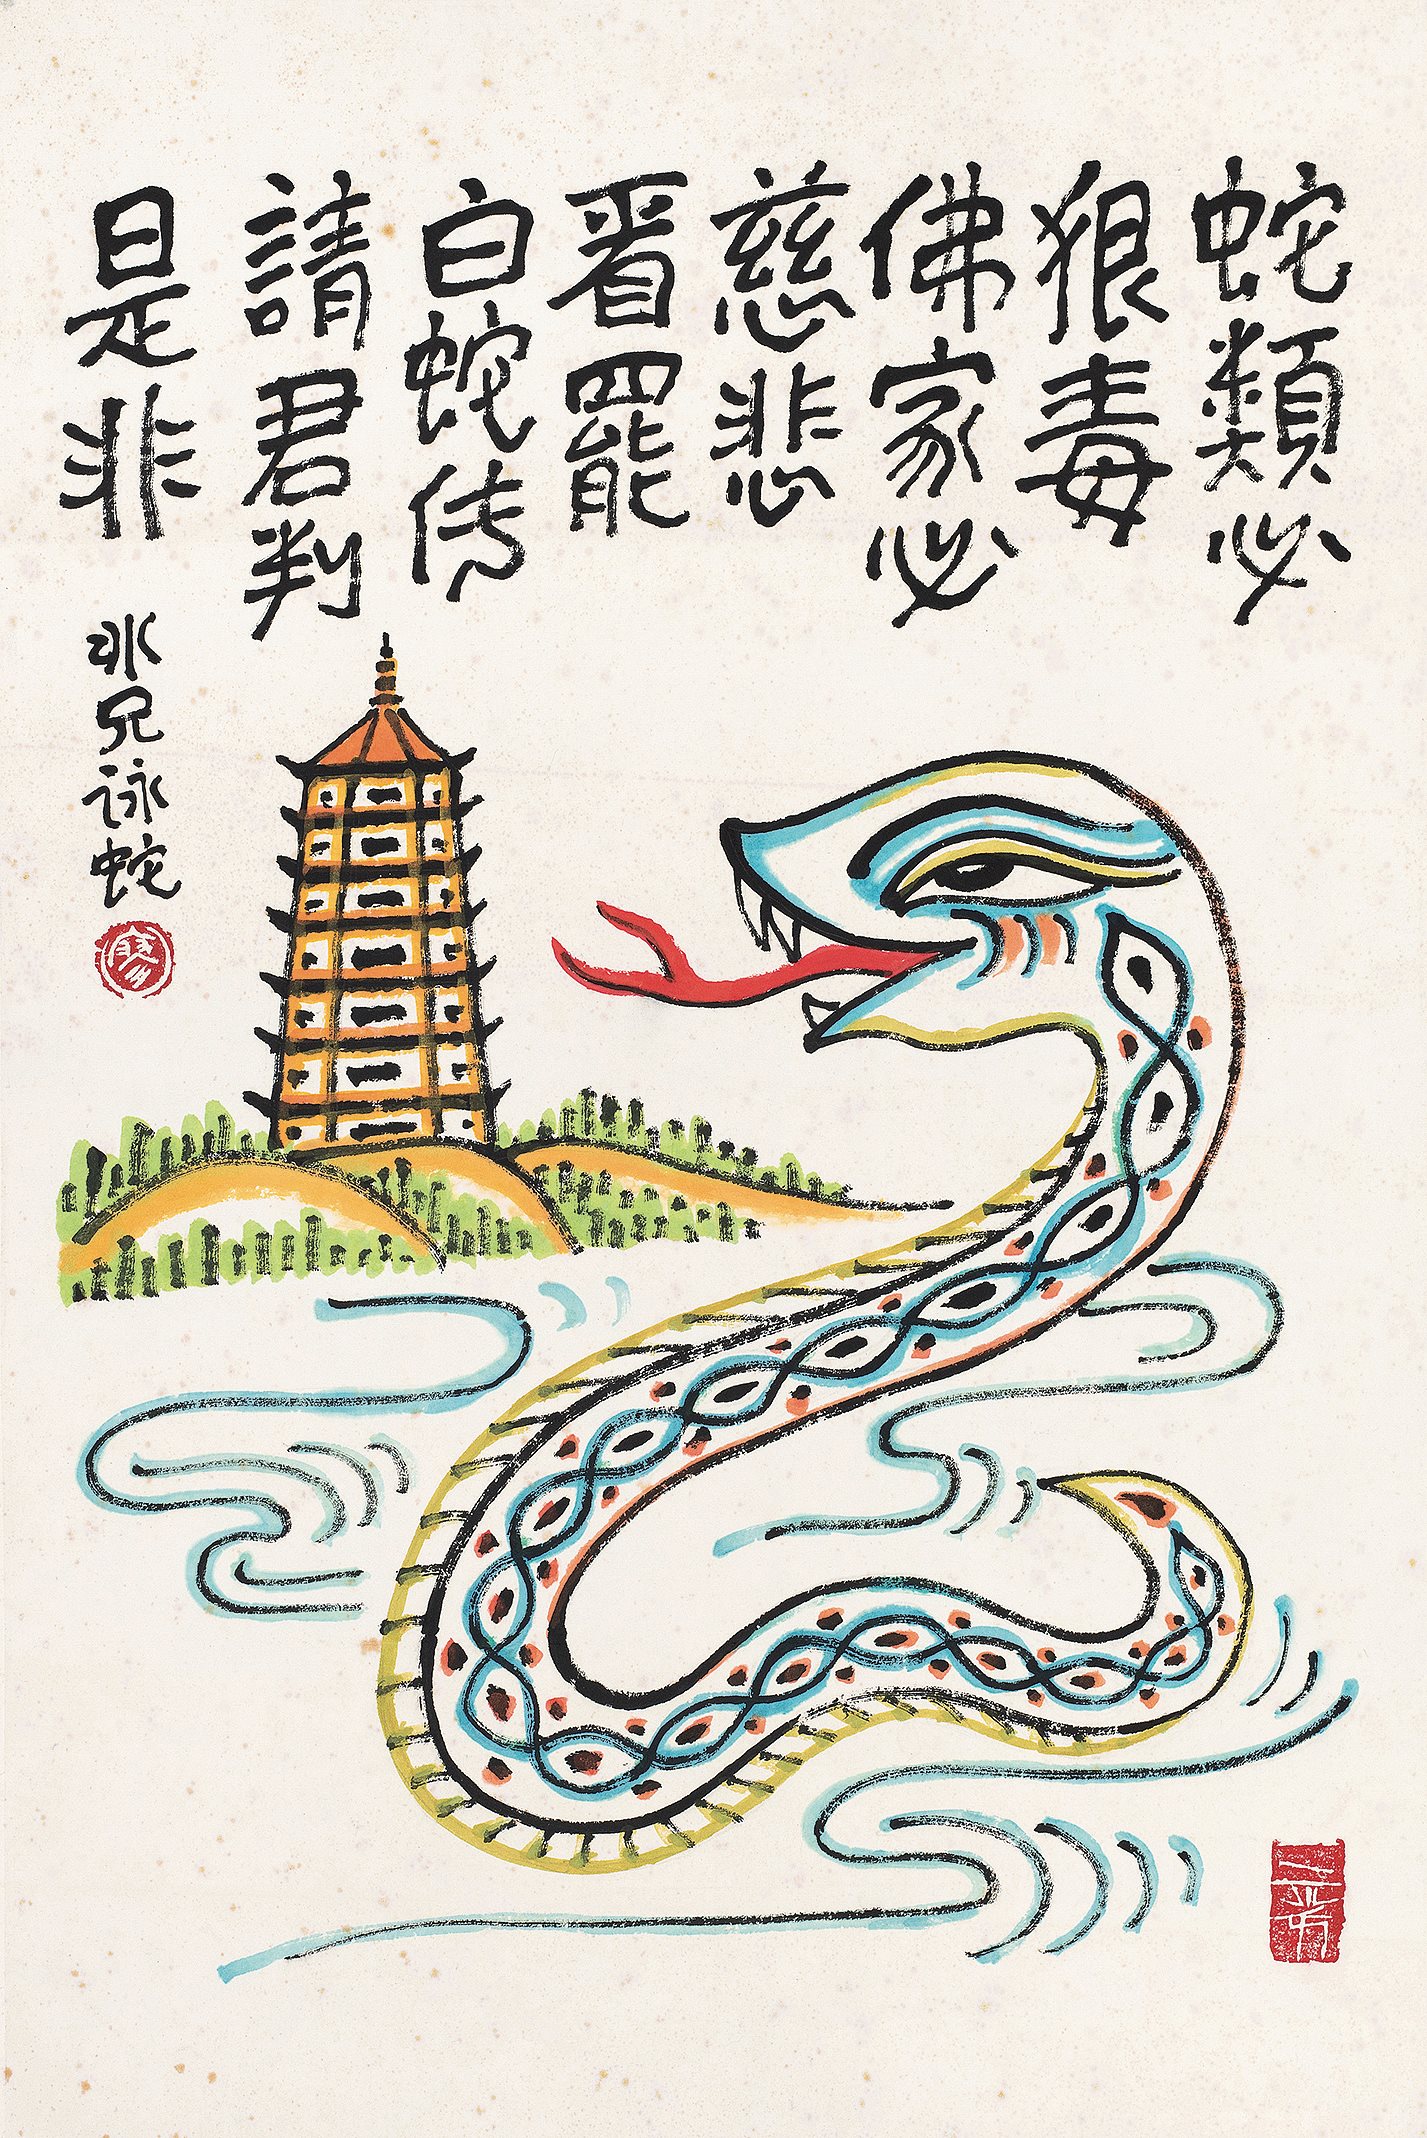 蛇類必
狠毒
佛家必
慈悲
看罷
白蛇传
請君判
是非
冰兄詠蛇